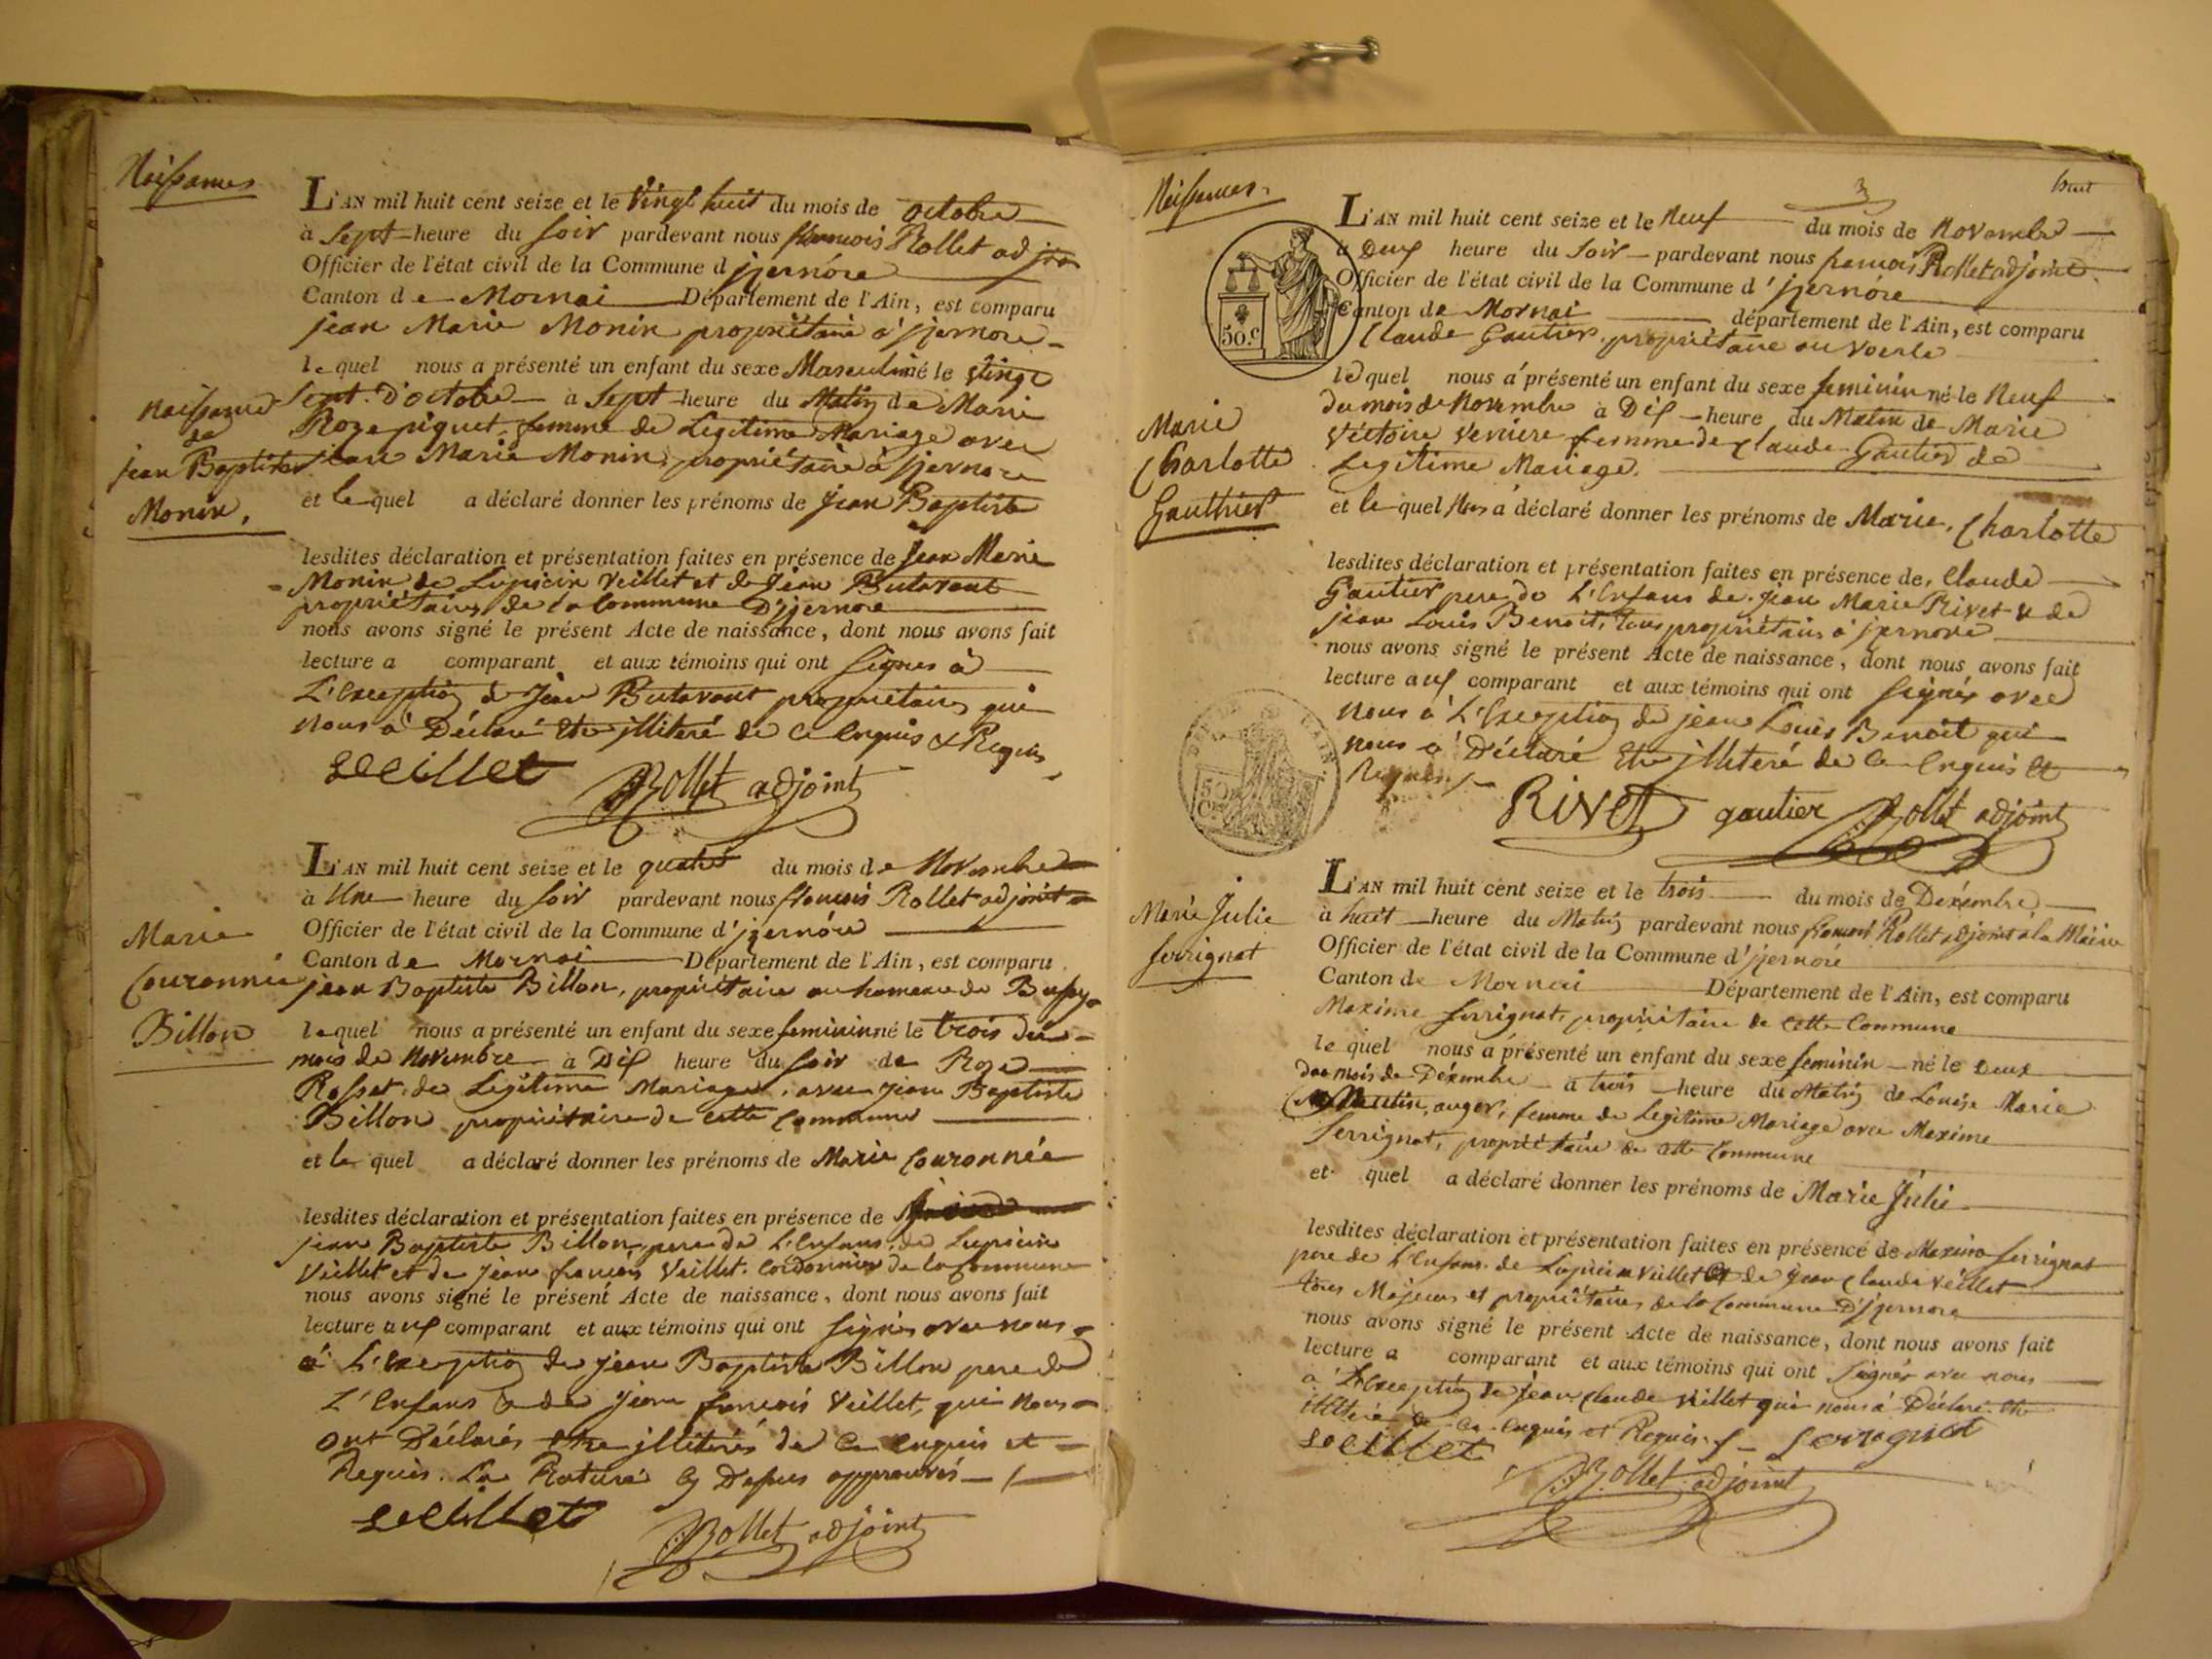 Naissances
L'AN mil huit cent seize et le vingt huit du mois de octobre
à Sept heure du soir pardevant nous françois Rollet adjoint
Officier de l'état civil de la Commune d'jzernore
Canton de Mornai Département de l'Ain, est comparu
jean Marie Monin propriétaire à jzernore
lequel nous a présenté un enfant du sexe Masculin né le vingt
Sept d'octobre à Sept heure du Matin de Marie
Roze piquet, femme de Legitime Mariage avec
jean Marie Monin, propriétaire à jzernore
et lequel a déclaré donner les prénoms de jean Baptiste
naissance
de
jean Baptiste
Monin.
lesdites déclaration et présentation faites en présence de jean Marie
Monin de Lupicin Veillet et de jean Butavant
propriétaires de la Commune D'jzernore
nous avons signé le présent Acte de naissance, dont nous avons fait
lecture a comparant et aux témoins qui ont signés à
L'Exception de jean Butavant propriétaire qui
nous à Déclaré Etre jlliteré de ce Enquis & Requis
Veillet Rollet adjoint
L'AN mil huit cent seize et le quatre du mois de Novembre
à Une heure du soir pardevant nous françois Rollet adjoint
Officier de l'état civil de la Commune d'jzernore
Canton de Mornai Département de l'Ain, est comparu
jean Baptiste Billon, propriétaire au hameau de Bussy
lequel nous a présenté un enfant du sexe feminin né le trois du
mois de Novembre à Dix heure du soir de Roze
Rosset de Legitime Mariage avec jean Baptiste
Billon propriétaire de cette Commune
et lequel a déclaré donner les prénoms de Marie Couronnée
Marie
Couronnée
Billon
lesdites déclaration et présentation faites en présence de
jean Baptiste Billon, pere de L'Enfans, de Lupicin
Veillet et de jean françois Veillet. Cordonnier de la Commune
nous avons signé le présent Acte de naissance, dont nous avons fait
lecture aux comparant et aux témoins qui ont signés avec nous
à L'Exception de jean Baptiste Billon pere de
L'Enfans & de jean françois Veillet, qui nous
ont Déclarés etre jlliterés de ce enquis et
Requis. La Rature cy Dessus approuvés
Veillet Rollet adjoint
Naissances.
3
huit
L'AN mil huit cent seize et le Neuf du mois de Novembre
à Deux heure du Soir pardevant nous françois Rollet adjoint
Officier de l'état civil de la Commune d'jzernore
Canton de Mornai département de l'Ain, est comparu
Claude Gautier, propriétaire au Voerle
lequel nous a présenté un enfant du sexe feminin né le Neuf
du mois de Novembre à Dix heure du Matin de Marie
Victoire Verriere femme de Claude Gautier de
Legitime Mariage.
et lequel Nous a déclaré donner les prénoms de Marie, Charlotte
50.c
Marie
Charlotte
Gauthier
lesdites déclaration et présentation faites en présence de, Claude
Gautier pere de L'Enfans de jean Marie Rivet & de
jean Louis Benoit, tous propriétaires à jzernore
nous avons signé le présent Acte de naissance, dont nous avons fait
lecture aux comparant et aux témoins qui ont signés avec
nous à L'Exception de jean Louis Benoit qui
nous à Déclaré Etre jlliteré de ce Enquis et
Requis
RIVET gautier Rollet adjoint
L'AN mil huit cent seize et le trois du mois de Dexembre
à huit heure du Matin pardevant nous françois Rollet adjoint à la Mairie
Officier de l'état civil de la Commune d'jzernore
Canton de Mornai Département de l'Ain, est comparu
Maxime Serrignat, propriétaire de cette Commune
lequel nous a présenté un enfant du sexe feminin né le Deux
du mois de Dexembre à trois heure du Matin de Louise Marie
auger, femme de Legitime Mariage avec Maxime
Serrignat, propriétaire de cette Commune
et quel a déclaré donner les prénoms de Marie Julie
Marie Julie
Serrignat
lesdites déclaration et présentation faites en présence de Maxime Serrignat
pere de L'Enfans de Lupicin Veillet et de jean Claude Veillet
tous Majeurs et propriétaires de la Commune D'jzernore
nous avons signé le présent Acte de naissance, dont nous avons fait
lecture a comparant et aux témoins qui ont signés avec nous
à L'Exception de jean Claude Veillet qui nous à Déclaré etre
illiteré de ce enquis et Requis
Veillet Serrignat
Rollet adjoint